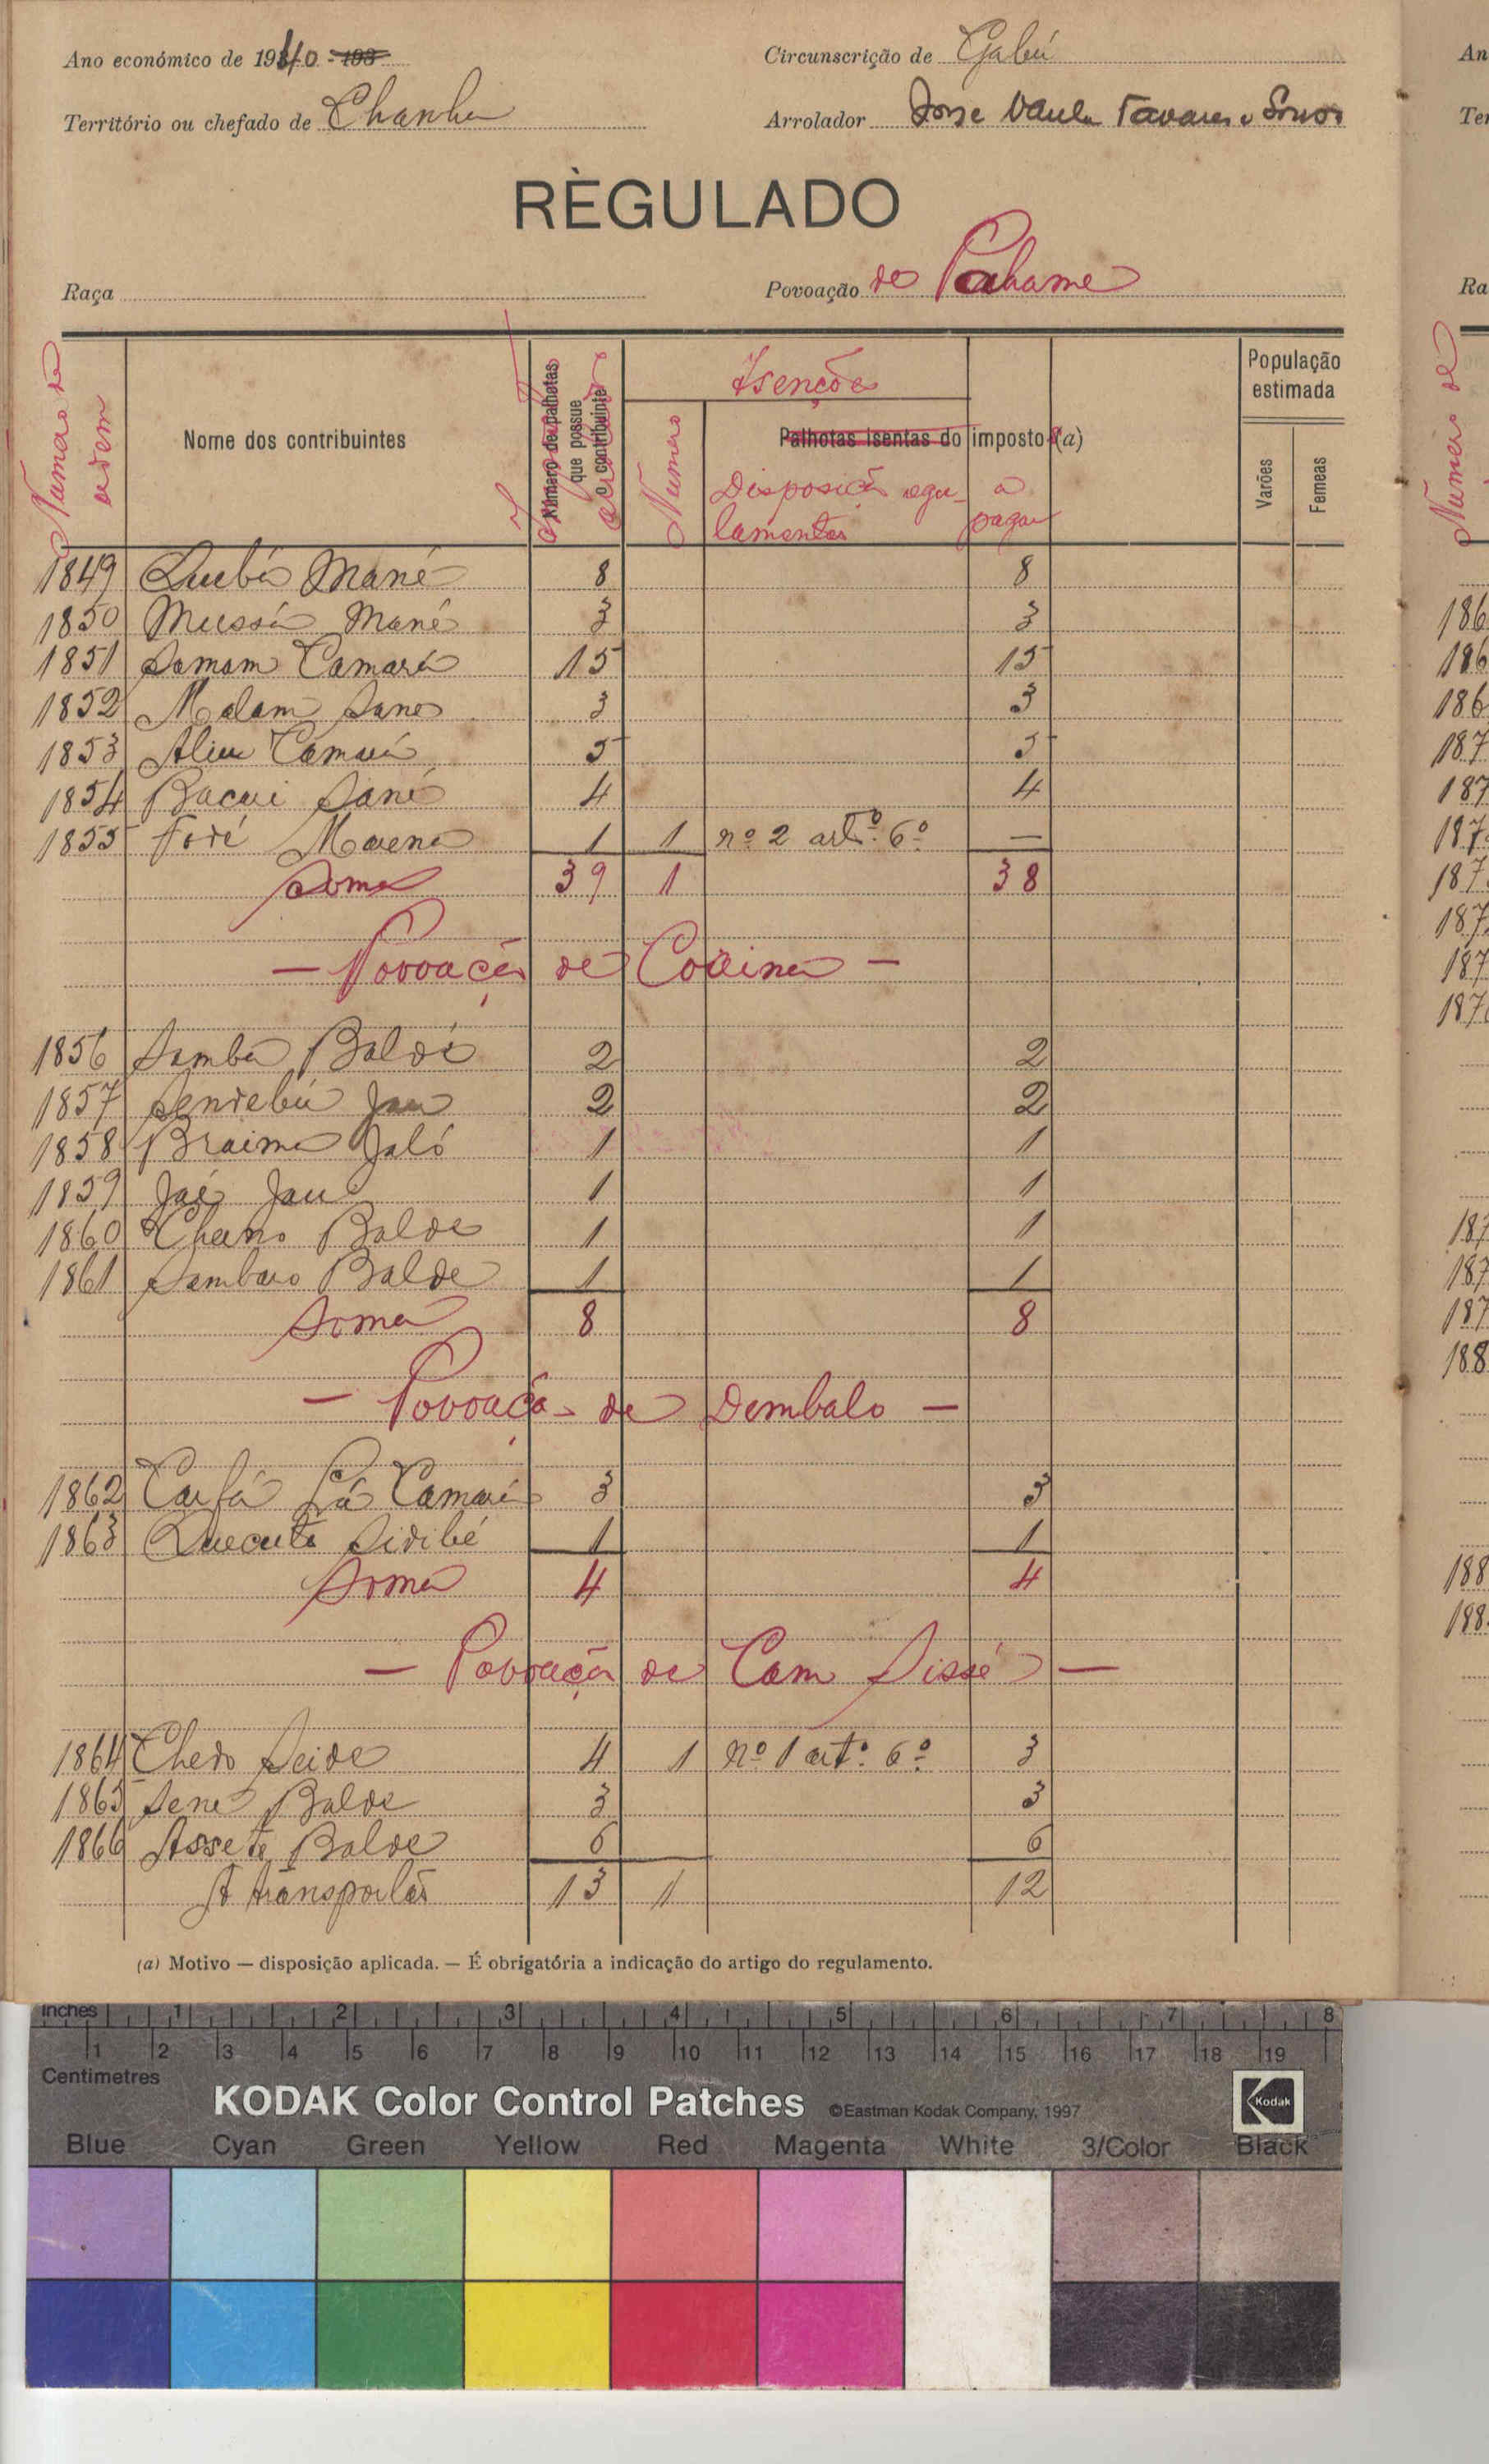 Ano económico de 1940 -193
Circunscrição de Gabú
Território ou chefado de Chanha
Arrolador Jorge Tavares Sousa
RÈGULADO
Raça
Povoação de Pahame
Numero de ordem
Nome dos contribuintes
Número de palhotas que possue o contribuinte
Isenções
Numero
Palhotas isentas do imposto (a)
Disposição regulamentar
a pagar
População estimada
Varões
Femeas
1849 Mané 8 8
1850 Mussá Mané 3 3
1851 Mamam Camará 15 15
1852 Malam Sane 3 3
1853 Aliu Camará 5 5
1854 Bacar Sané 4 4
1855 Fodé 1 1 nº 2 artº. 6º —
Soma 39 1 38
— Povoação de Cocima —
1856 Samba Baldé 2 2
1857 Sendebú Jau 2 2
1858 Braima Jaló 1 1
1859 Jaé Jau 1 1
1860 Cherno Balde 1 1
1861 Sambaro Balde 1 1
Soma 8 8
— Povoação de Dembalo —
1862 Carfá Camará 3 3
1863 Quecuta Sidibé 1 1
Soma 4 4
— Povoação de Cam Sissé —
1864 Chedo Seide 4 1 nº 1 artº. 6º 3
1865 Sene Balde 3 3
1866 Assete Balde 6 6
A transportar 13 1 12
(a) Motivo — disposição aplicada. — É obrigatória a indicação do artigo do regulamento.
inches 1 2 3 4 5 6 7 8
1 2 3 4 5 6 7 8 9 10 11 12 13 14 15 16 17 18 19
Centimetres
KODAK Color Control Patches ©Eastman Kodak Company, 1997 Kodak
Blue Cyan Green Yellow Red Magenta White 3/Color Black